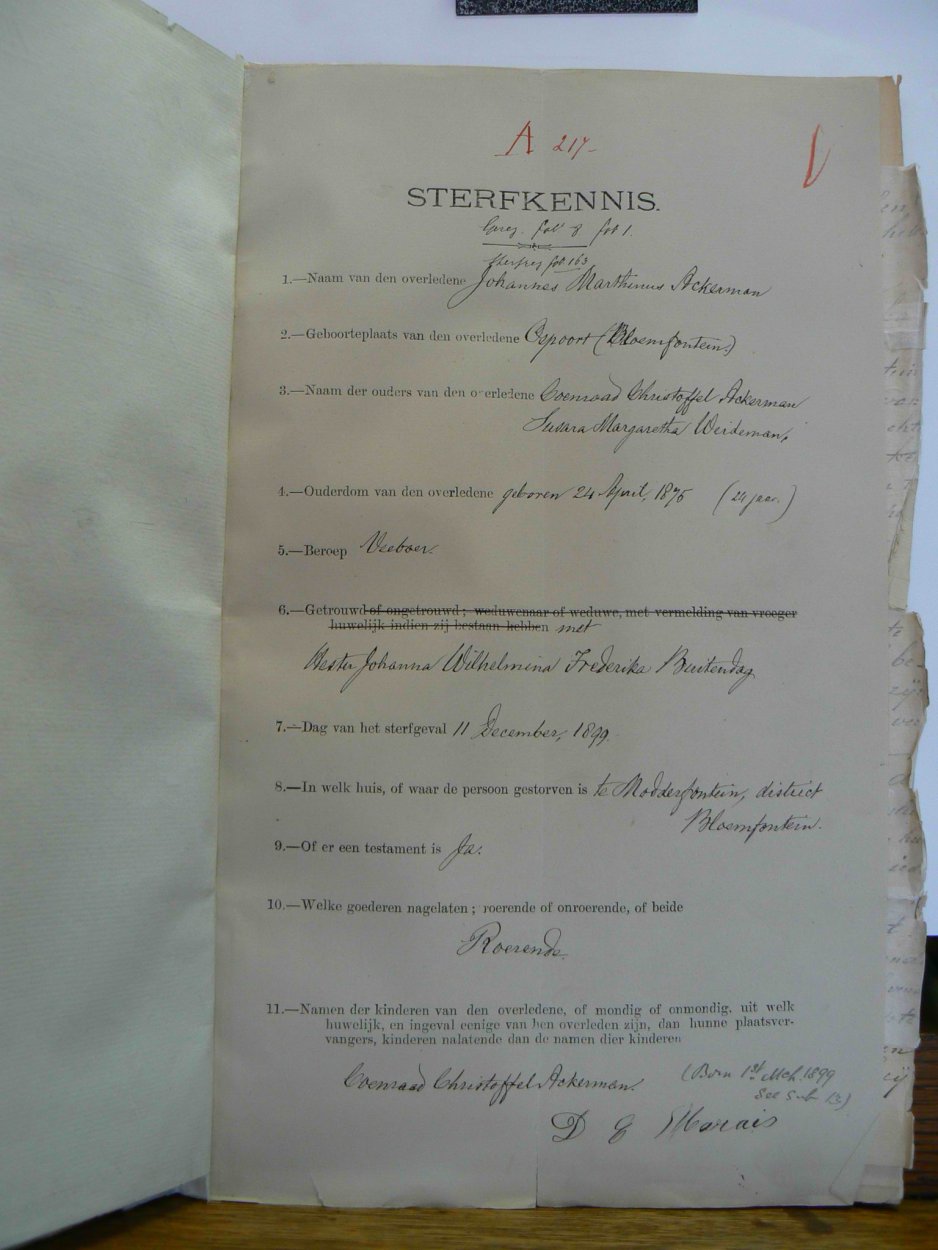 A 217
STERFKENNIS.
fol 1.
fol 163
1.—Naam van den overledene Johannes Marthinus Ackerman
2.—Geboorteplaats van den overledene Ospoort (Bloemfontein)
3.—Naam der ouders van den overledene Coenraad Christoffel Ackerman
Susara Margaretha Weideman,
4.—Ouderdom van den overledene geboren 24 April, 1875 (24 jaar)
5.—Beroep Veeboer.
6.—Getrouwd of ongetrouwd; weduwenaar of weduwe, met vermelding van vroeger
huwelijk indien zij bestaan hebben met
Hester Johanna Wilhelmina Frederika Buitendag
7.—Dag van het sterfgeval 11 December, 1899.
8.—In welk huis, of waar de persoon gestorven is te Modderfontein, district
Bloemfontein.
9.—Of er een testament is Ja.
10.—Welke goederen nagelaten; roerende of onroerende, of beide
Roerende.
11.—Namen der kinderen van den overledene, of mondig of onmondig, uit welk
huwelijk, en ingeval eenige van hen overleden zijn, dan hunne plaatsver-
vangers, kinderen nalatende dan de namen dier kinderen
Coenraad Christoffel Ackerman. (Born 1st Mch. 1899
See Sub 13)
D E Marais